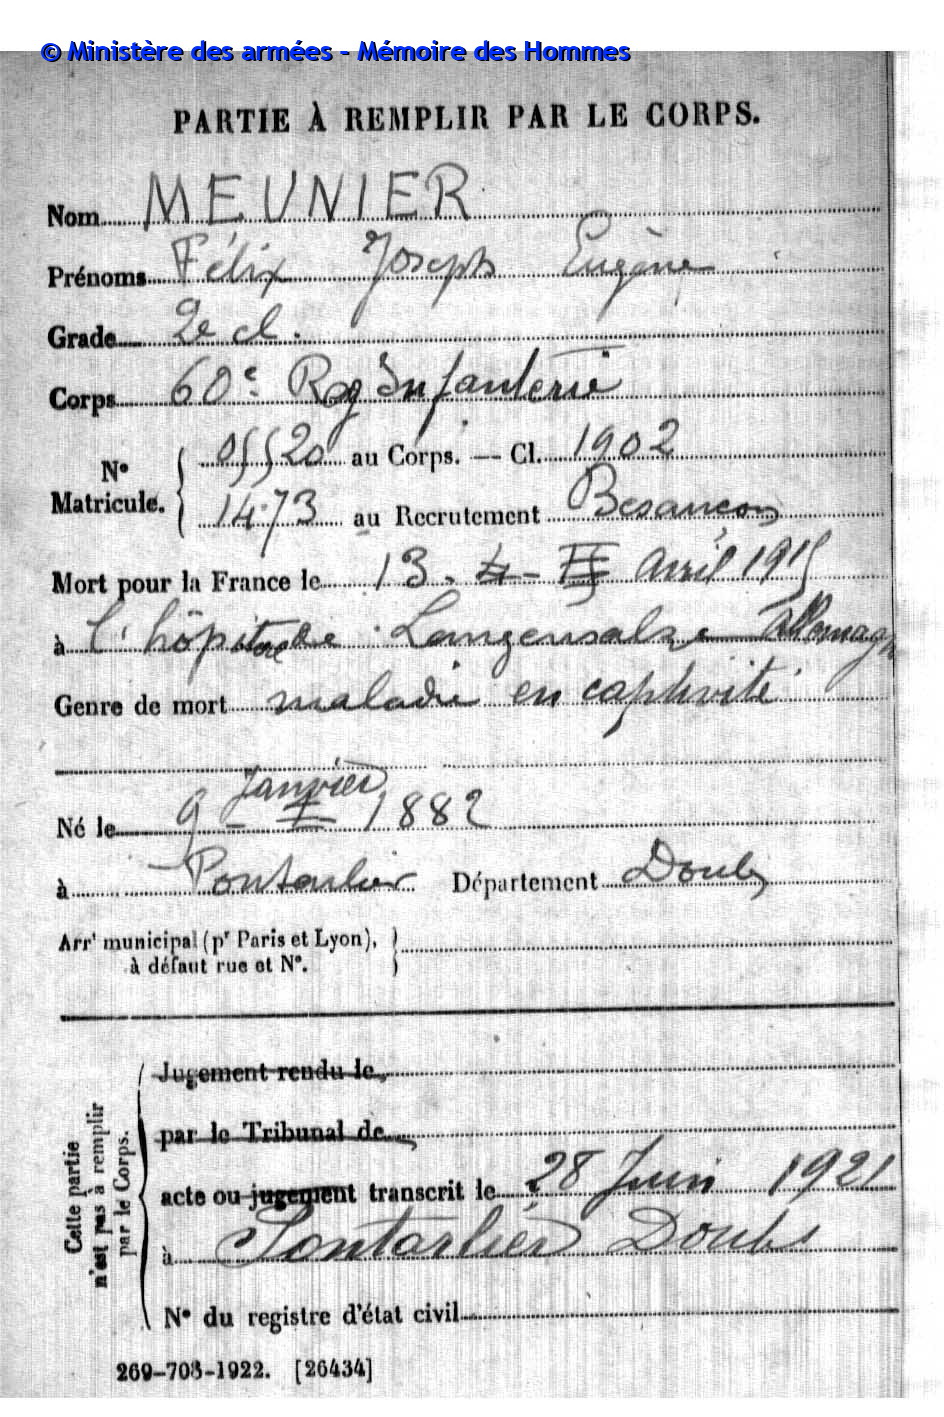 © Ministère des armées - Mémoire des Hommes
PARTIE À REMPLIR PAR LE CORPS.
Nom MEUNIER
Prénoms Félix Joseph Eugène
Grade 2e cl.
Corps 60e Reg Infanterie
N° Matricule. 05520 au Corps. — Cl. 1902
1473 au Recrutement Besançon
Mort pour la France le 13 - 4 - Avril 1915
à l'hôpital de Langensalza Allemagn
Genre de mort maladie en captivité
Janvier
Né le 9 - I 1882
à Pontarlier Département Doubs
Arrt municipal (pr Paris et Lyon),
à défaut rue et N°.
Cette partie
n'est pas à remplir
par le Corps.
Jugement rendu le
par le Tribunal de
acte ou jugement transcrit le 28 Juin 1921
à Pontarlier Doubs
N° du registre d'état civil
269-708-1922. [26434]